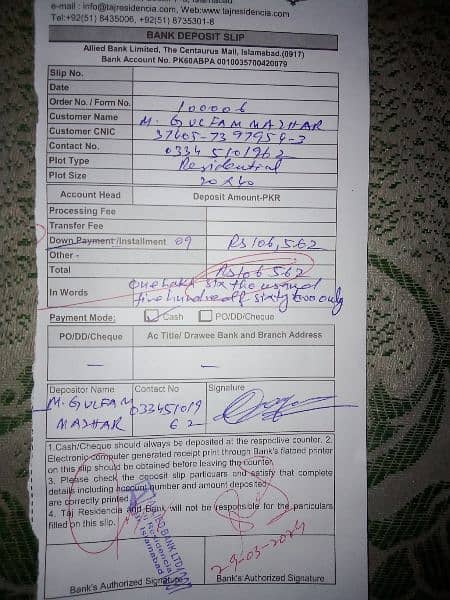 e-mail : info@tajresidencia.com, Web:www.tajresidencia.com
Tel:+92(51) 8435006, +92(51) 8735301-6
BANK DEPOSIT SLIP
Allied Bank Limited, The Centaurus Mall, Islamabad.(0917)
Bank Account No. PK60ABPA 0010035700420079
Slip No.
Date
Order No. / Form No. 100006
Customer Name M. GULFAM MAZHAR
Customer CNIC 37405-7397959-3
Contact No. 0334 5101962
Plot Type Residential
Plot Size 20x40
Account Head Deposit Amount-PKR
Processing Fee
Transfer Fee
Down Payment/Installment 09 Rs 106,562
Other -
Total Rs 106 562
In Words One lakh six thousand
five hundred sixty two only
Payment Mode: Cash PO/DD/Cheque
PO/DD/Cheque Ac Title/ Drawee Bank and Branch Address
— —
Depositor Name Contact No Signature
M. GULFAM 033451019
MAZHAR 62
1.Cash/Cheque should always be deposited at the respective counter. 2.
Electronic computer generated receipt print through Bank's flatbed printer
on this slip should be obtained before leaving the counter.
3. Please check the deposit slip particulars and satisfy that complete
details including account number and amount deposited
are correctly printed.
4. Taj Residencia and Bank will not be responsible for the particulars
filled on this slip.
BANK LTD
Residencia
Islamabad
29-03-2024
Bank's Authorized Signature Bank's Authorized Signature